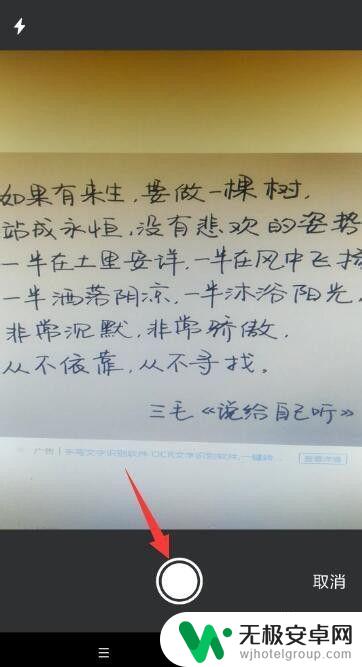 如果有来生,要做一棵树,
站成永恒,没有悲欢的姿势
一半在土里安详,一半在风中飞扬
一半洒落阴凉,一半沐浴阳光,
非常沉默,非常骄傲,
从不依靠,从不寻找。
三毛《说给自己听》
广告 | 手写文字识别软件 OCR文字识别软件,一键转... 查看详情
取消
无极安卓网
wjhotelgroup.com